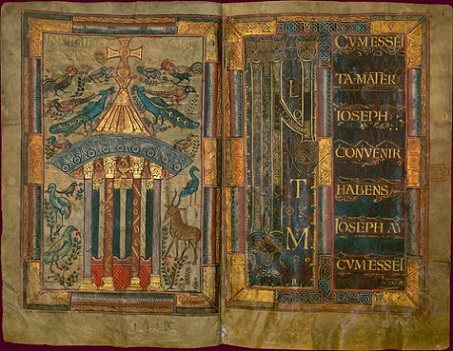 L
O
T
M
R
CVM ESSET
TA·MATER
IOSEPH
CONVENIR
HABENS
IOSEPH AV
CVM ESSET